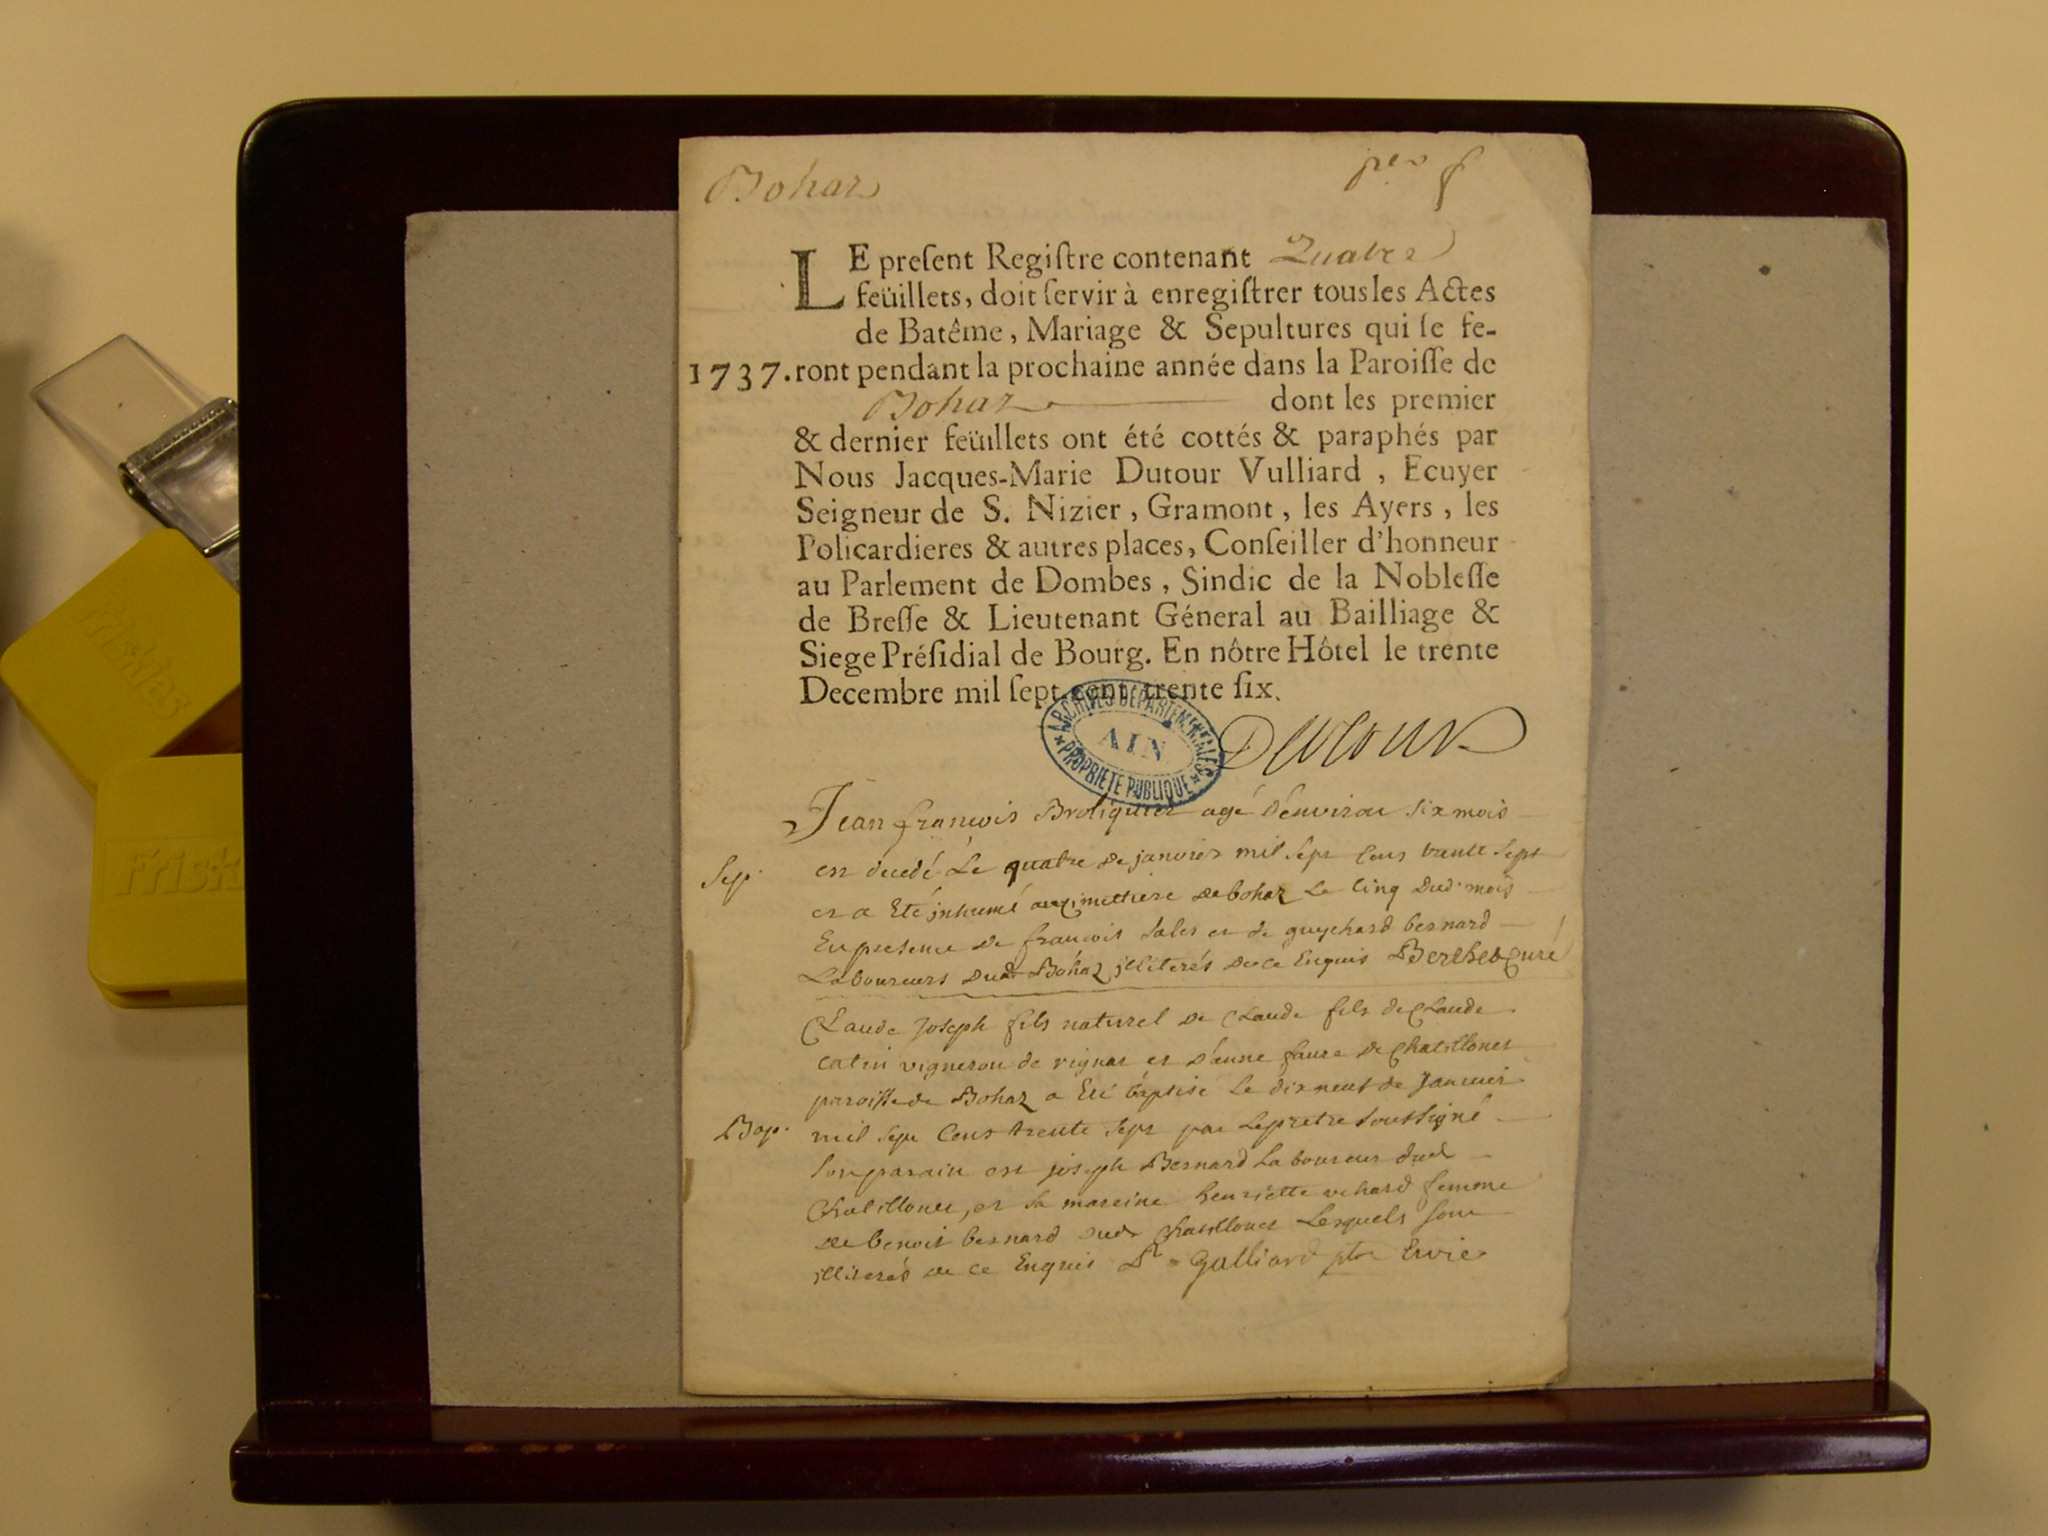 Bohaz
per f
LE preſent Regiſtre contenant Quatre
feüillets, doit ſervir à enregiſtrer tous les Actes
de Batême, Mariage & Sepultures qui ſe fe-
1737. ront pendant la prochaine année dans la Paroiſſe de
Bohaz dont les premier
& dernier feüillets ont été cottés & paraphés par
Nous Jacques-Marie Dutour Vulliard, Ecuyer
Seigneur de S. Nizier, Gramont, les Ayers, les
Policardieres & autres places, Conſeiller d'honneur
au Parlement de Dombes, Sindic de la Nobleſſe
de Breſſe & Lieutenant Géneral au Bailliage &
Siege Préſidial de Bourg. En nôtre Hôtel le trente
Decembre mil ſept cent trente ſix.
ARCHIVES DEPARTEMENTALES
AIN
PROPRIETE PUBLIQUE
Dutour
Jean francois Broliquier agé d'environ six mois
Sep. est decedé Le quatre de janvier mil sept cens trente sept
et a Eté jnhumé au cimettiere de bohaz Le cinq dud. mois
En presence de francois sales et de guychard bernard
Laboureurs dud Bohaz jlliterés de ce Enquis Berthet Curé
Claude Joseph fils naturel de Claude fils de Claude
catin vigneron de vignas et d'anne faure de Chatillonet
paroisse de Bohaz a Eté baptisé Le dixneuf de Janvier
Bap. mil sept Cens trente sept par Le pretre soussigné
son parain est joseph Bernard Laboureur dud
Chatillonet, et sa mareine henriette vehard femme
de benoit bernard dud Chatillonet Lesquels sont
jlliterés de ce Enquis Galliard ptre